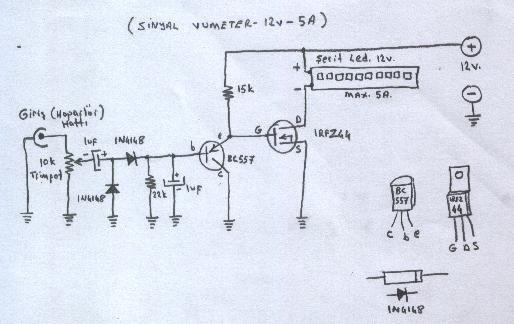 (SİNYAL VUMETER-12V-5A)
Şerit Led. 12v.
+
-
MAX. 5A.
+
12V.
-
15k
Giriş (Hoparlör)
Hattı
1uF
1N4148
10k
Trimpot
1N4148
22k
1uF
b
e
c
BC557
G
D
S
IRFZ44
BC
557
c b e
IRFZ
44
G D S
1N4148